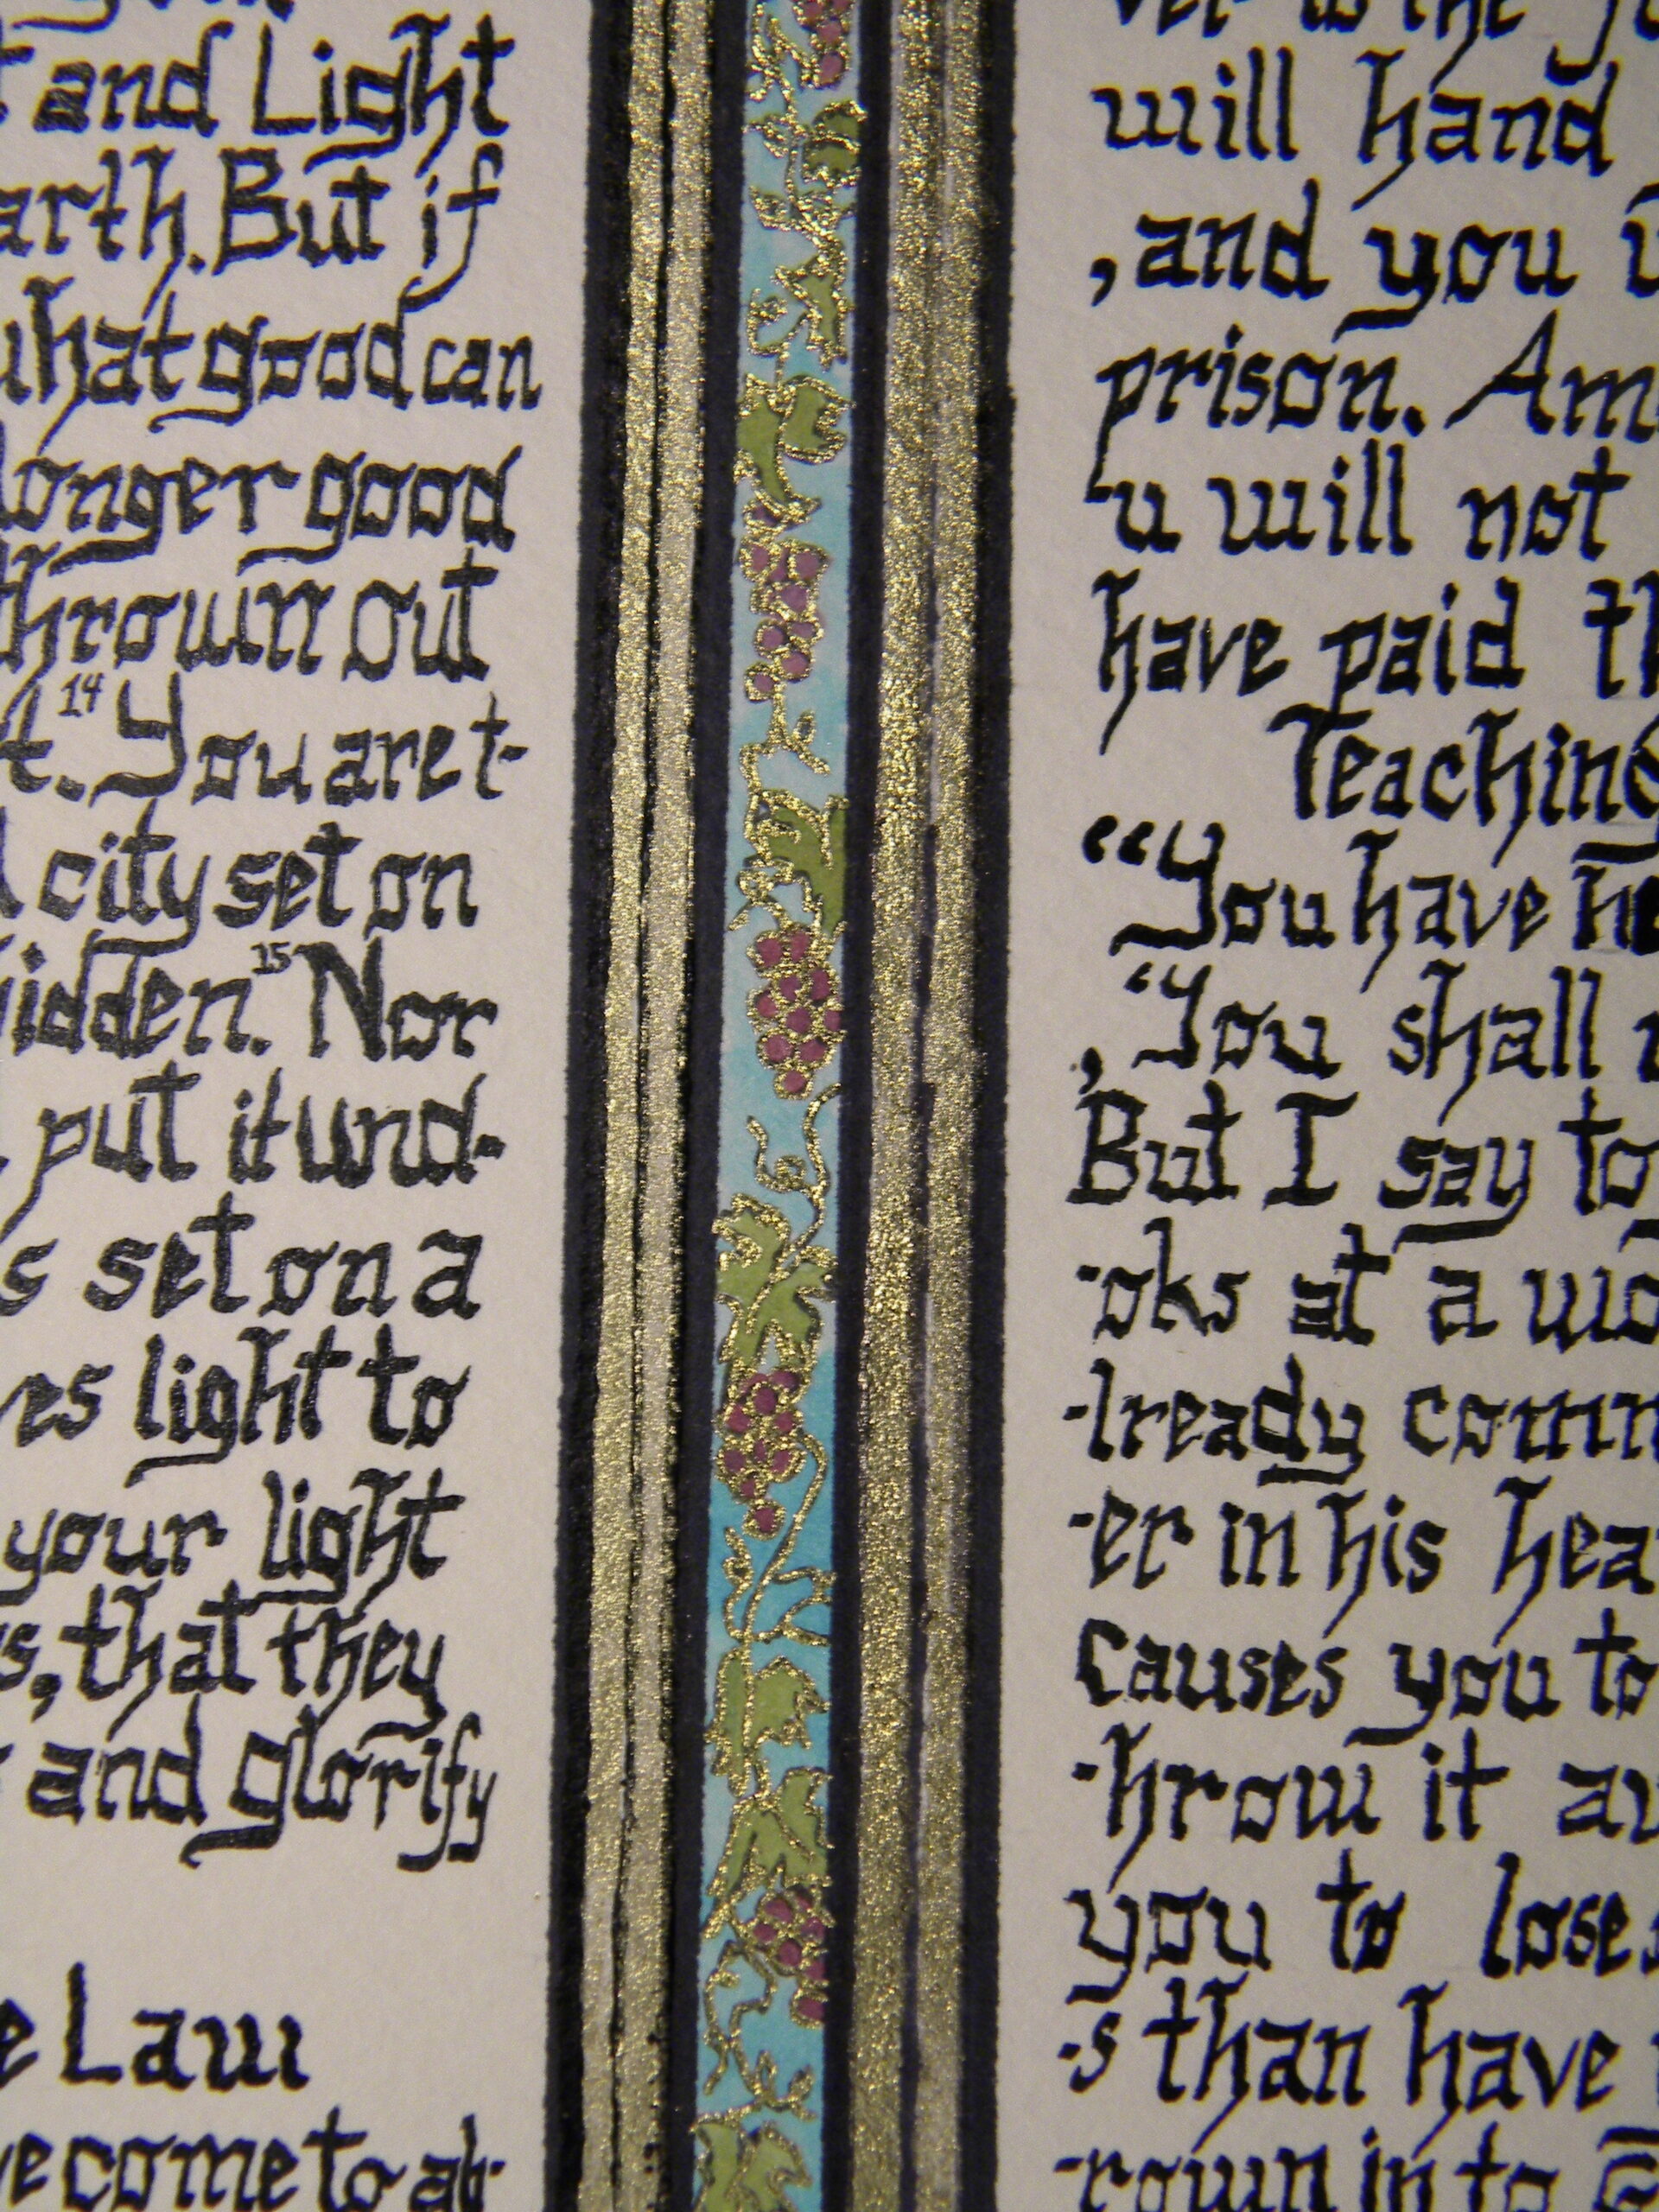 and Light
arth. But if
what good can
longer good
thrown out
t. 14 You are t-
city set on
hidden. 15 Nor
put it und-
s set on a
ves light to
your light
s, that they
and glorify
e Law
ve come to ab-
ver to the
will hand
, and you
prison. Am
-u will not
have paid th
Teaching
“You have he
, ‘You shall
But I say to
-oks at a wo
-lready comm
-er in his hea
causes you to
-hrow it aw
you to lose
-s than have
-rown in to G